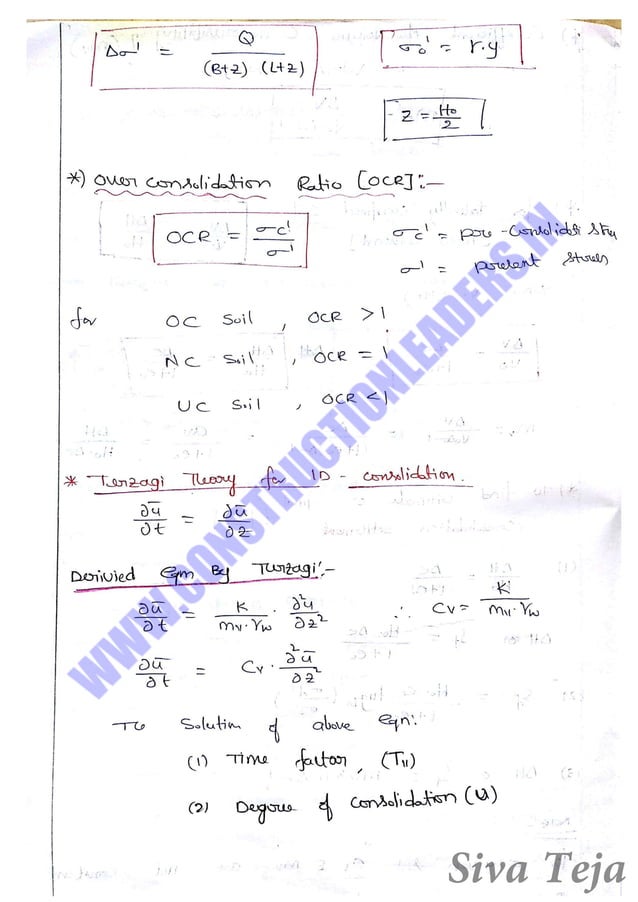 Δσ' = Q / (B+Z) (L+Z)
σo' = r.y
Z = Ho/2
*) Over consolidation Ratio [OCR]:-
OCR = σc'/σ'
σc' = pre-Consolidati Stre
σ' = present Stress
for OC Soil, OCR > 1
NC Soil, OCR = 1
UC Soil, OCR < 1
* Terzagi Theory for 1D - consolidation.
∂ū/∂t = ∂ū/∂z
Derivied Eqn By Terzagi:-
∂ū/∂t = K/mv.γw . ∂²u/∂z² ∴ Cv = K/mv.γw
∂ū/∂t = Cv . ∂²ū/∂z²
To Solution of above Eqn:
(1) Time factor, (Tv)
(2) Degree of consolidation (U)
WWW.CONSTRUCTIONLEADERS.IN
Siva Teja